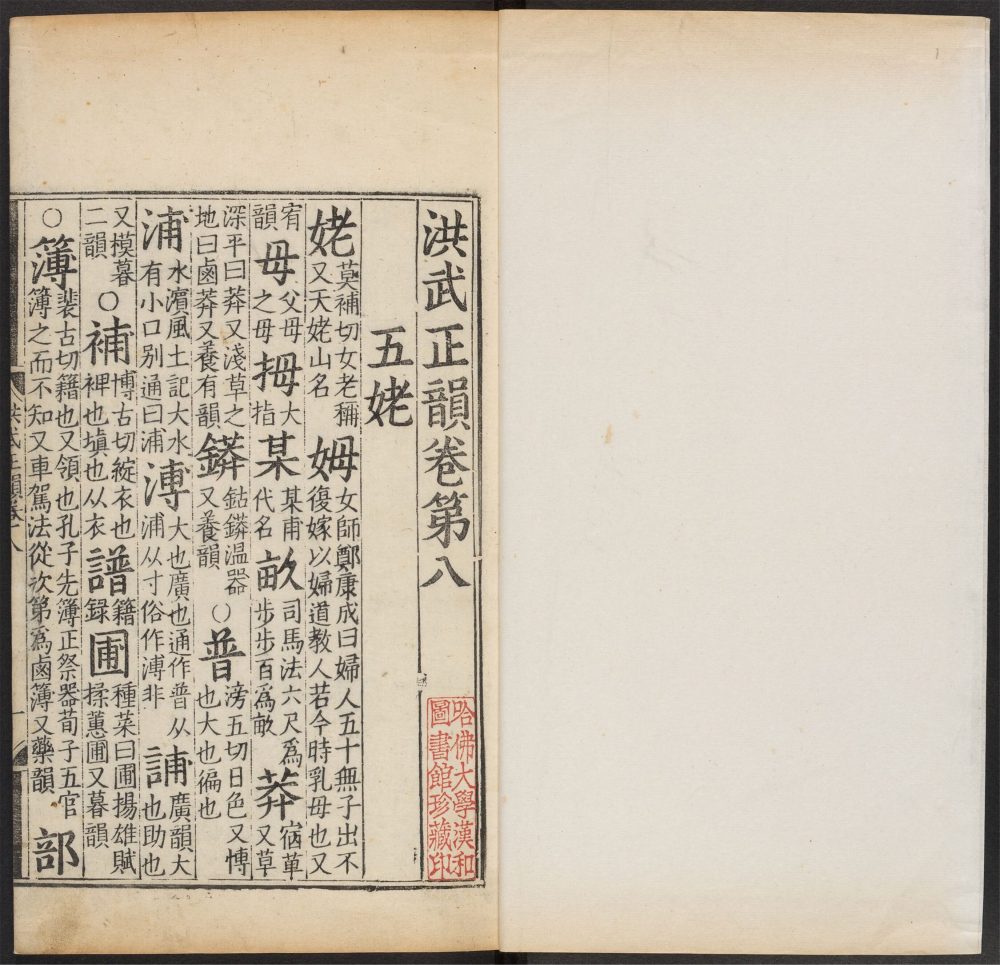 洪武正韻卷第八
哈佛大學漢和
圖書館珍藏印
五姥
姥莫補切女老稱又天姥山名姆女師鄭康成曰婦人五十無子出不復嫁以婦道教人若今時乳母也又
宥韻母父母之母拇大指某某甫代名畝司馬法六尺爲步步百爲畝莽宿草又草
深平曰莽又淺草之地曰鹵莽又養有韻䥈鈷䥈温器又養韻○普滂五切日色又愽也大也徧也
浦水濱風土記大水有小口别通曰浦溥大也廣也通作普从浦从寸俗作溥非誧廣韻大也助也
又模暮二韻○補博古切綻衣也裨也塡也从衣譜籍録圃種菜曰圃揚雄賦揉蕙圃又暮韻
○簿裴古切籍也又領也孔子先簿正祭器荀子五官簿之而不知又車駕法從次第爲鹵簿又藥韻部
洪武正韻卷八
一